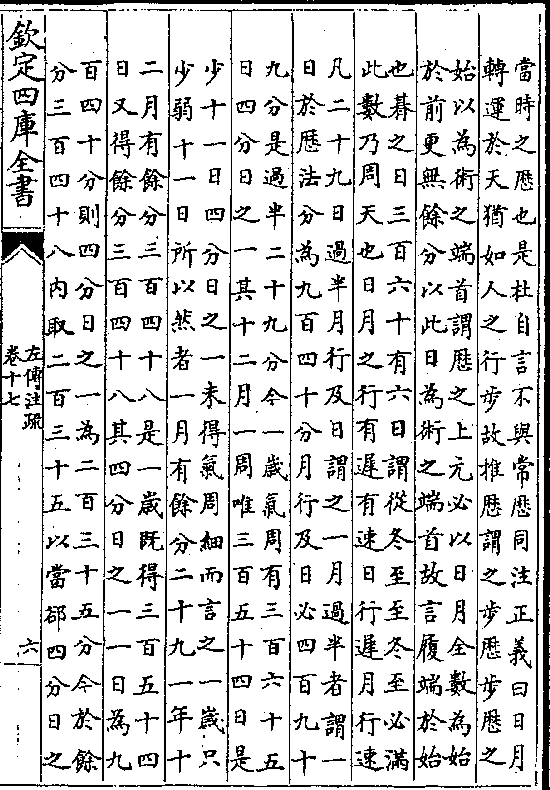 當時之厯也是杜自言不與常厯同注正義曰日月
轉運於天猶如人之行步故推厯謂之步厯步厯之
始以為術之端首謂厯之上元必以日月全數為始
於前更無餘分以此日為術之端首故言履端於始
也朞之日三百六十有六日謂從冬至至冬至必滿
此數乃周天也日月之行有遲有速日行遲月行速
凡二十九日過半月行及日謂之一月過半者謂一
日於厯法分為九百四十分月行及日必四百九十
九分是過半二十九分今一歲氣周有三百六十五
日四分日之一其十二月一周唯三百五十四日是
少十一日四分日之一未得氣周細而言之一歲只
少弱十一日所以然者一月有餘分二十九一年十
二月有餘分三百四十八是一歲既得三百五十四
日又得餘分三百四十八其四分日之一一日為九
百四十分則四分日之一為二百三十五分今於餘
分三百四十八内取二百三十五以當郤四分日之
欽定四庫全書
左傳注疏
卷十七
六